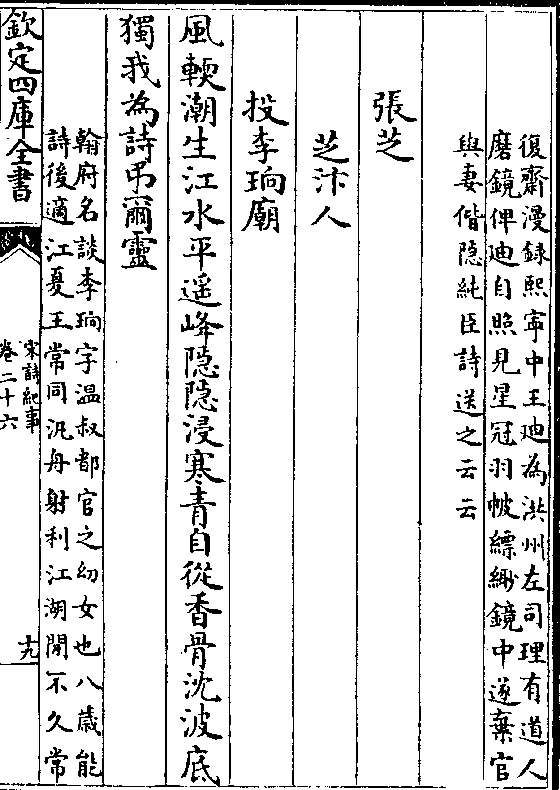 復齋漫錄熙寧中王廸為洪州左司理有道人
磨鏡俾廸自照見星冠羽帔縹緲鏡中遂棄官
與妻偕隐純臣詩送之云云
張芝
芝汴人
投李珦廟
風輭潮生江水平遥峰隐隐浸寒青自從香骨沈波底
獨我為詩弔爾靈
翰府名談李珦字温叔都官之幼女也八歲能
詩後適江夏王常同汎舟射利江湖間不久常
欽定四庫全書
宋詩紀事
卷二十六
十九